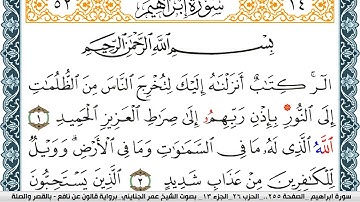 ٥٢ سُورَةُ إِبْرَاهِيمَ ١٤
بِسْمِ اللَّهِ الرَّحْمَٰنِ الرَّحِيمِ
الٓر۪ كِتَٰبٌ أَنزَلْنَٰهُ إِلَيْكَ لِتُخْرِجَ النَّاسَ مِنَ الظُّلُمَٰتِ
إِلَى النُّورِ بِإِذْنِ رَبِّهِمُۥ إِلَىٰ صِرَٰطِ الْعَزِيزِ الْحَمِيدِ ١
اللَّهُ الَّذِي لَهُۥ مَا فِي السَّمَٰوَٰتِ وَمَا فِي الْأَرْضِ وَوَيْلٌ
لِّلْكَٰفِرِينَ مِنْ عَذَابٍ شَدِيدٍ ٢ الَّذِينَ يَسْتَحِبُّونَ
سورة ابراهيم - الصفحة ٢٥٥ - الحزب ٢٦ - الجزء ١٣ - بصوت الشيخ عمر الجنايني برواية قالون عن نافع - بالقصر والصلة